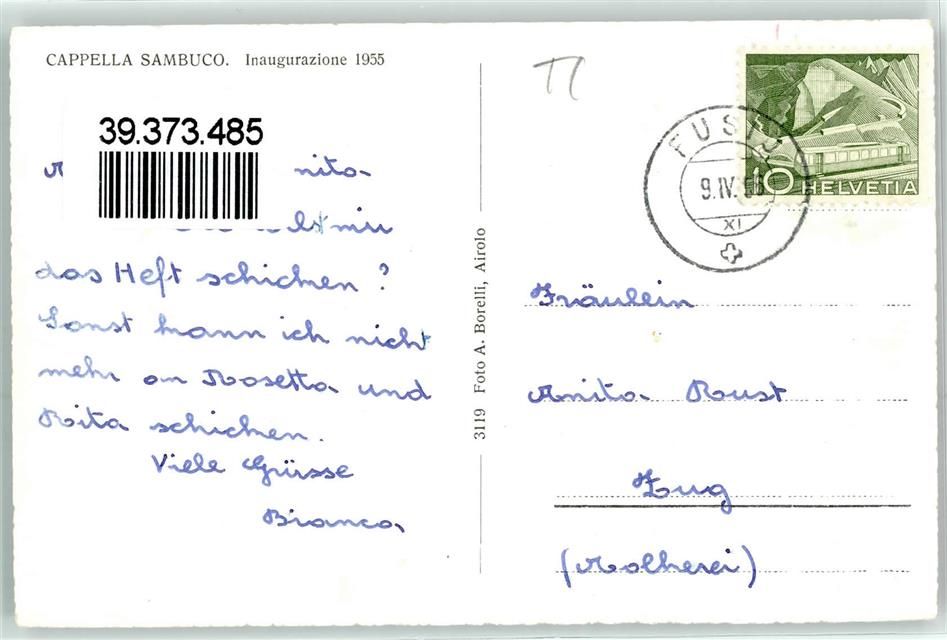 CAPPELLA SAMBUCO. Inaugurazione 1955
39.373.485
nita
mir
das Heft schicken ?
Sonst kann ich nicht
mehr an Rosetta und
Rita schicken.
Viele Grüsse
Bianca
3119 Foto A. Borelli, Airolo
FUSIO
9.IV.56
XI
10 HELVETIA
Fräulein
Anita Rust
Zug
(Molkerei)